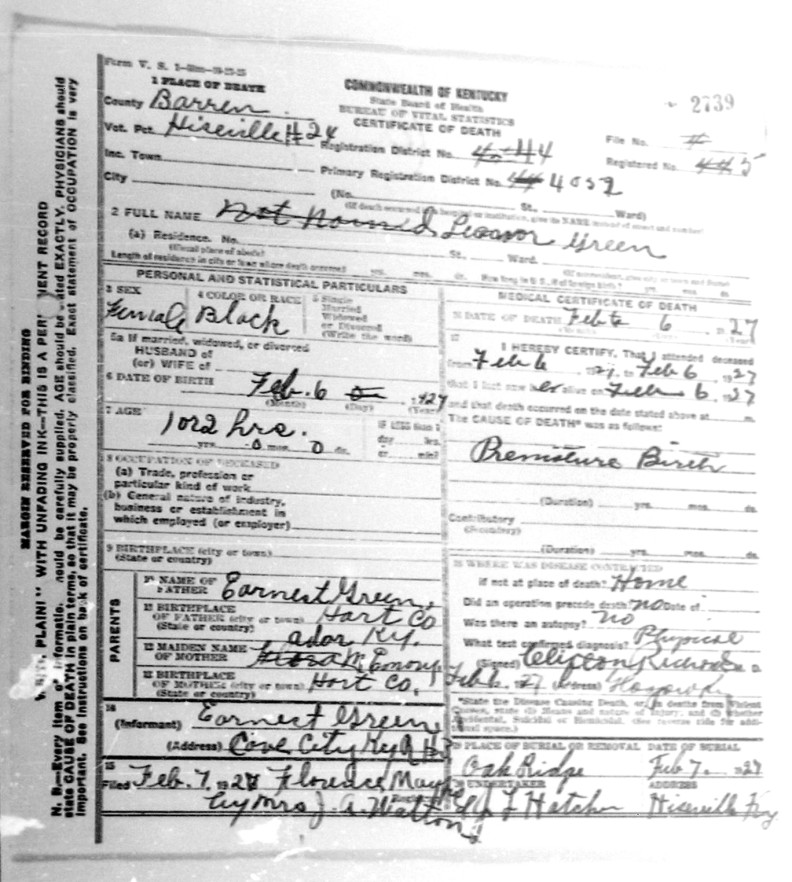 Form V. S. 1
1 PLACE OF DEATH
COMMONWEALTH OF KENTUCKY
State Board of Health
BUREAU OF VITAL STATISTICS
CERTIFICATE OF DEATH
2739
County Barren
Vot. Pct. Hiseville #24
File No.
Inc. Town
Registration District No. 44
Registered No. 5
City
Primary Registration District No. 4052
(No. St., Ward)
2 FULL NAME Not Named Green
(a) Residence. No. St., Ward.
(Usual place of abode)
Length of residence in city or town where death occurred yrs. mos. ds. How long in U. S., if of foreign birth? yrs. mos. ds.
PERSONAL AND STATISTICAL PARTICULARS
3 SEX Female
4 COLOR OR RACE Black
5 Single
Married
Widowed
or Divorced
(Write the word)
5a If married, widowed, or divorced
HUSBAND of
(or) WIFE of
6 DATE OF BIRTH Feb. 6 1927
(Month) (Day) (Year)
7 AGE 1 or 2 hrs.
yrs. 0 mos. 0 ds.
IF LESS than 1
day hrs.
or min?
8 OCCUPATION OF DECEASED
(a) Trade, profession or
particular kind of work
(b) General nature of industry,
business or establishment in
which employed (or employer)
9 BIRTHPLACE (city or town)
(State or country)
PARENTS
10 NAME OF
FATHER Earnest Green
11 BIRTHPLACE
OF FATHER (city or town) Hart Co
(State or country) Ky.
12 MAIDEN NAME
OF MOTHER
13 BIRTHPLACE
OF MOTHER (city or town) Hart Co.
(State or country)
14
(Informant) Earnest Green
(Address) Cave City Ky
15
Filed Feb. 7, 1927 Florence
by Mrs J. A. Watton
MEDICAL CERTIFICATE OF DEATH
16 DATE OF DEATH Feb 6 1927
17
I HEREBY CERTIFY, That I attended deceased
from Feb 6 1927, to Feb 6, 1927
that I last saw her alive on 6, 1927
and that death occurred on the date stated above at m.
The CAUSE OF DEATH* was as follows:
Premature Birth
(Duration) yrs. mos. ds.
Contributory
(Secondary)
(Duration) yrs. mos. ds.
18 WHERE WAS DISEASE CONTRACTED
if not at place of death? Home
Did an operation precede death? no Date of
Was there an autopsy? no
What test confirmed diagnosis? Physical
(Signed) Clifton M. D.
Feb 6, 1927 (Address)
*State the Disease Causing Death, or, in deaths from Violent
Causes, state (1) Means and nature of Injury, and (2) whether
Accidental, Suicidal or Homicidal. (See reverse side for addi-
tional space.)
19 PLACE OF BURIAL OR REMOVAL DATE OF BURIAL
Oak Ridge Feb 7. 1927
20 UNDERTAKER ADDRESS
Hatcher Hiseville Ky
MARGIN RESERVED FOR BINDING
WRITE PLAINLY WITH UNFADING INK—THIS IS A PERMANENT RECORD
N. B.—Every item of information should be carefully supplied. AGE should be stated EXACTLY. PHYSICIANS should
state CAUSE OF DEATH in plain terms, so that it may be properly classified. Exact statement of OCCUPATION is very
important. See instructions on back of certificate.